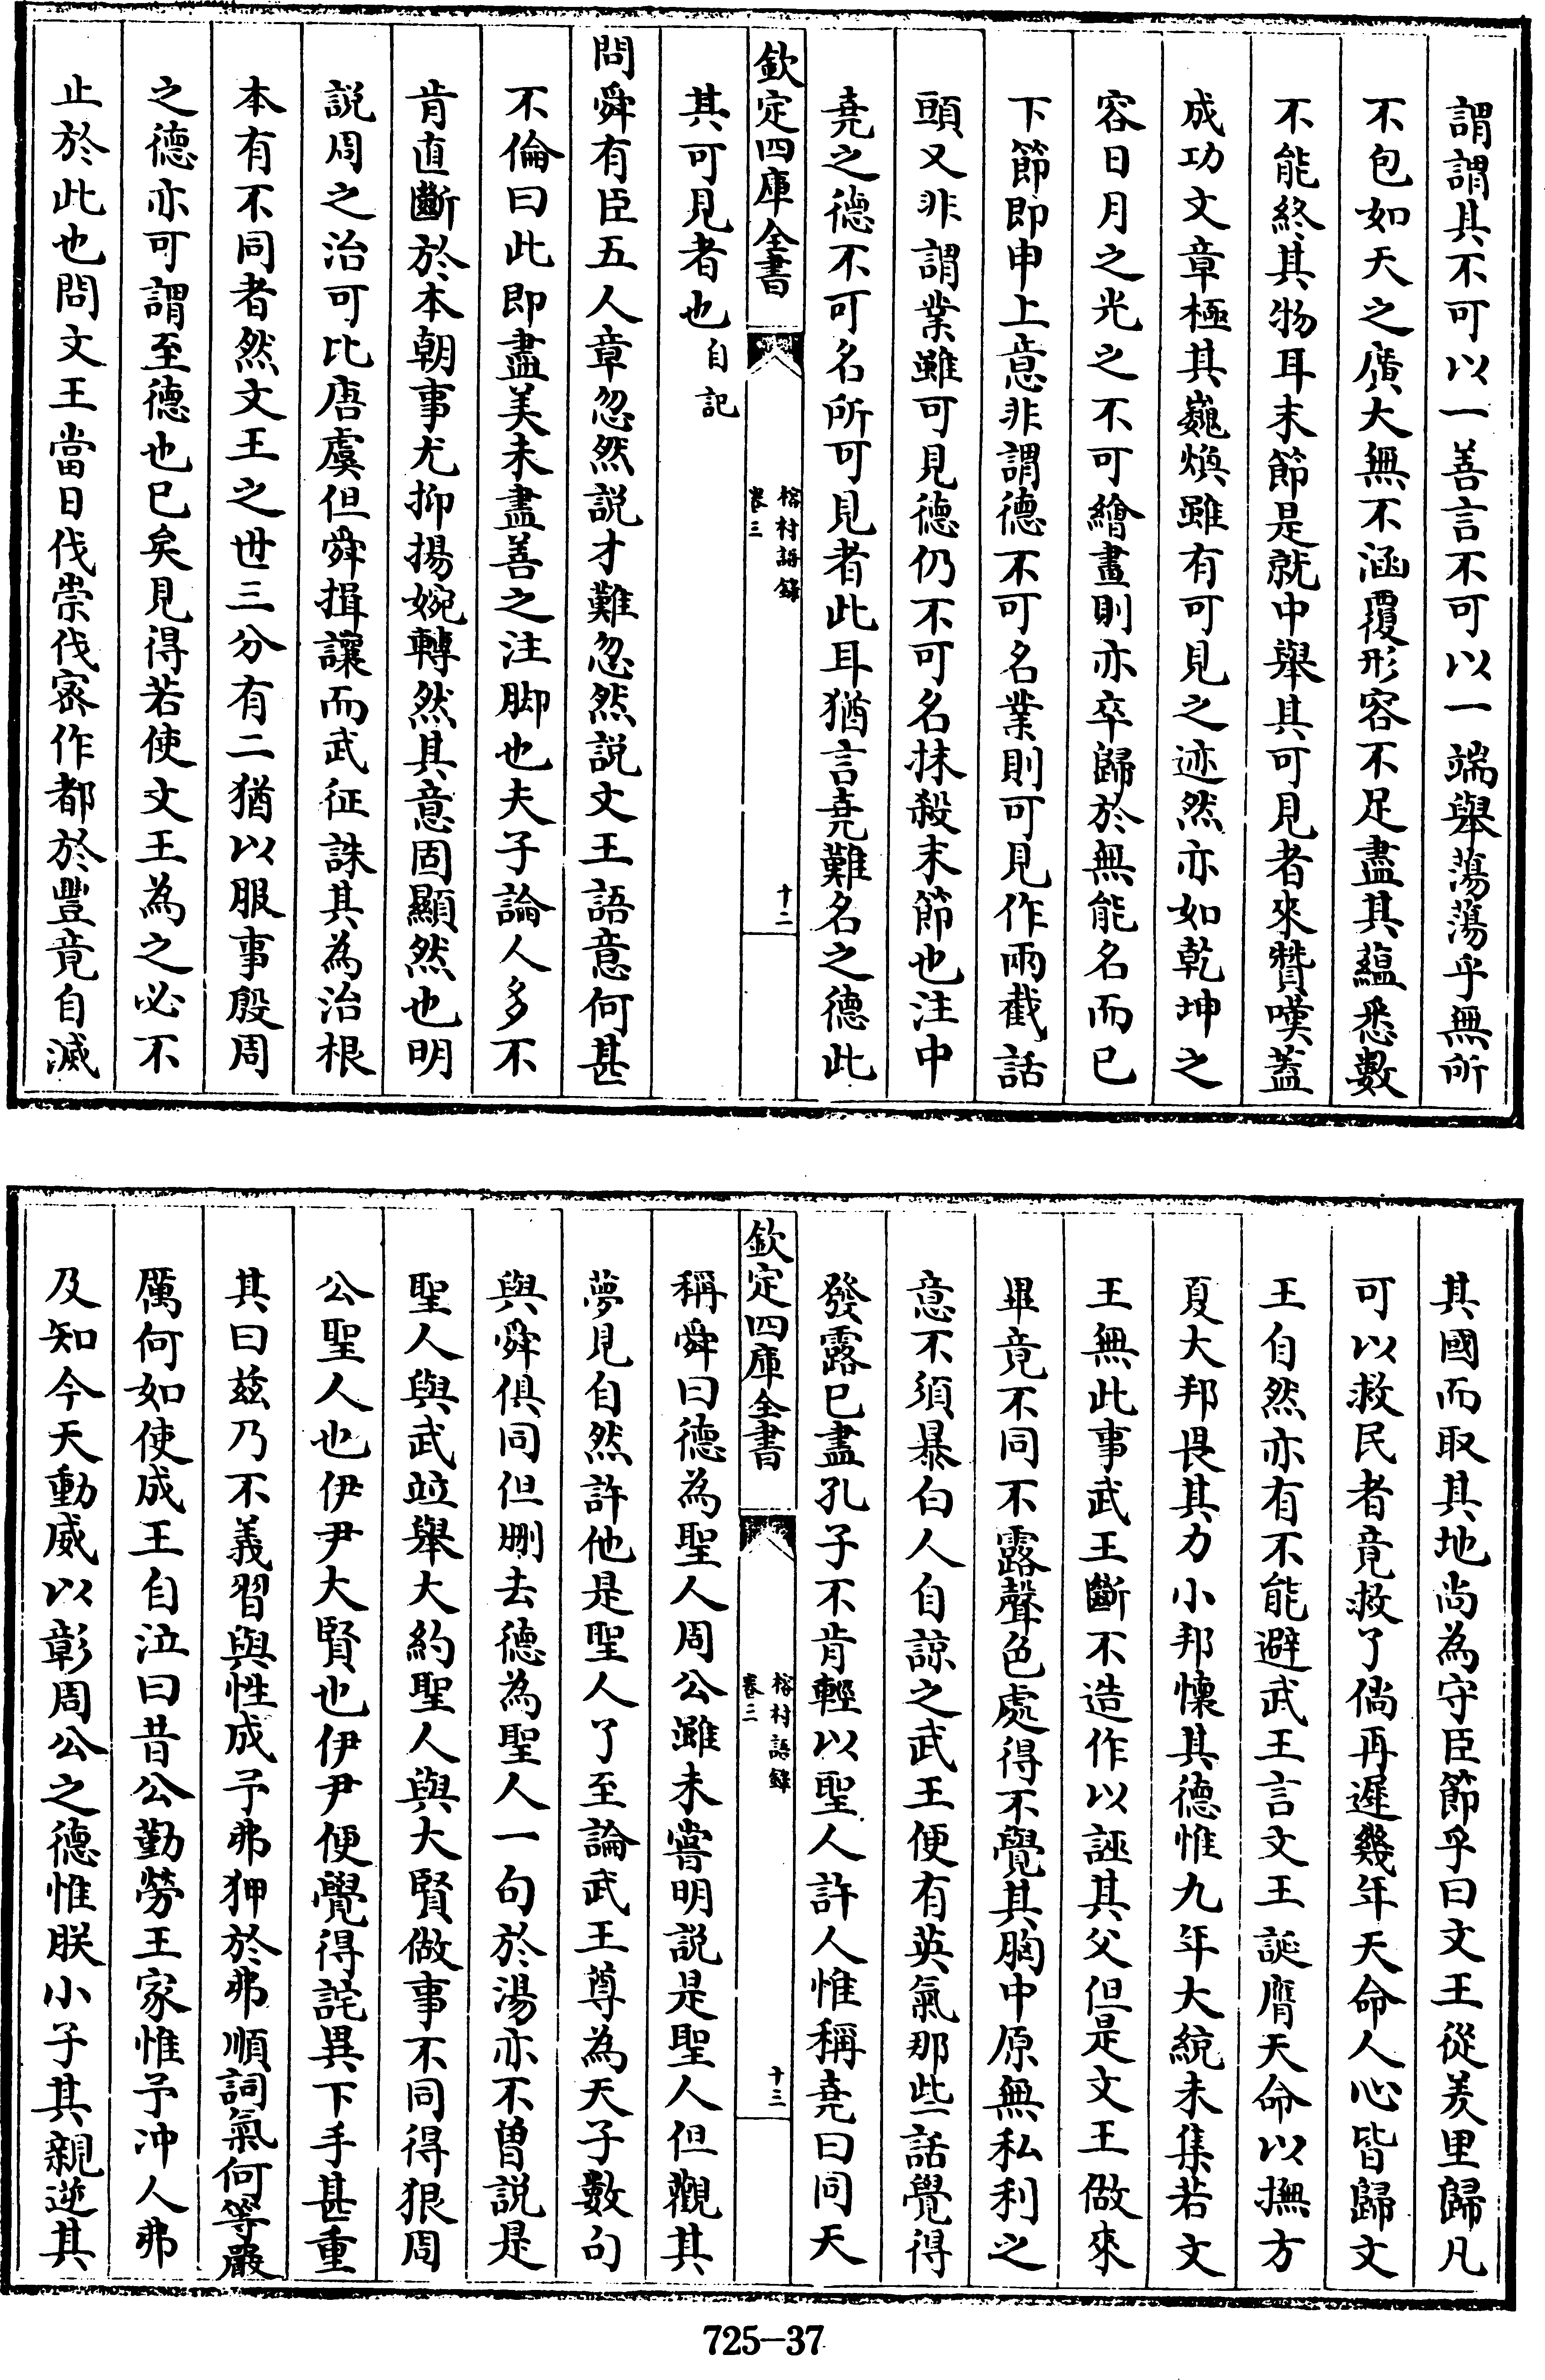 謂謂其不可以一善言不可以一端舉蕩蕩乎無所
不包如天之廣大無不涵覆形容不足盡其蘊悉數
不能終其物耳末節是就中舉其可見者來贊嘆蓋
成功文章極其巍煥雖有可見之迹然亦如乾坤之
容日月之光之不可繪畫則亦卒歸於無能名而已
下節即申上意非謂德不可名業則可見作兩截話
頭又非謂業雖可見德仍不可名抹殺末節也注中
堯之德不可名所可見者此耳猶言堯難名之德此
欽定四庫全書
榕村語錄
卷三
十二
其可見者也自記
問舜有臣五人章忽然説才難忽然説文王語意何甚
不倫曰此即盡美未盡善之注脚也夫子論人多不
肯直斷於本朝事尤抑揚婉轉然其意固顯然也明
説周之治可比唐虞但舜揖讓而武征誅其為治根
本有不同者然文王之世三分有二猶以服事殷周
之德亦可謂至德也已矣見得若使文王為之必不
止於此也問文王當日伐崇伐密作都於豐竟自滅
其國而取其地尚為守臣節乎曰文王從羑里歸凡
可以救民者竟救了倘再遲幾年天命人心皆歸文
王自然亦有不能避武王言文王誕膺天命以撫方
夏大邦畏其力小邦懷其德惟九年大統未集若文
王無此事武王斷不造作以誣其父但是文王做來
畢竟不同不露聲色處得不覺其胸中原無私利之
意不須暴白人自諒之武王便有英氣那些話覺得
發露已盡孔子不肯輕以聖人許人惟稱堯曰同天
欽定四庫全書
榕村語錄
卷三
十三
稱舜曰德為聖人周公雖未嘗明説是聖人但觀其
夢見自然許他是聖人了至論武王尊為天子數句
與舜俱同但刪去德為聖人一句於湯亦不曾説是
聖人與武竝舉大約聖人與大賢做事不同得狠周
公聖人也伊尹大賢也伊尹便覺得詫異下手甚重
其曰兹乃不義習與性成予弗狎於弗順詞氣何等嚴
厲何如使成王自泣曰昔公勤勞王家惟予冲人弗
及知今天動威以彰周公之德惟朕小子其親逆其
725-37